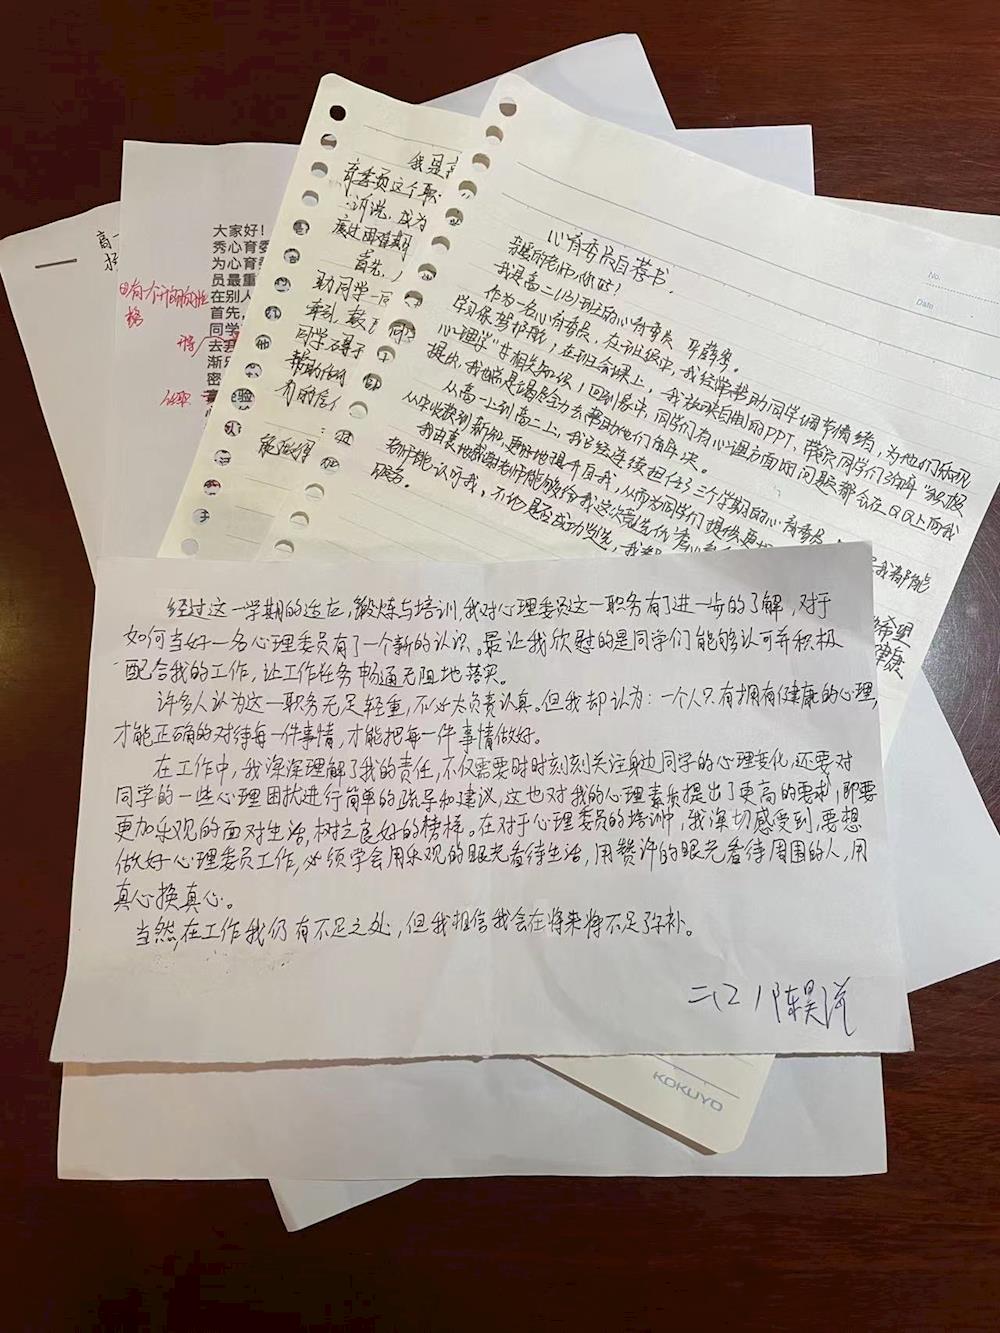 心育委员自荐书
亲爱的老师，你好！
我是高二(13)班的心育委员
作为一名心育委员，在班级中，我经常帮助同学调节情绪，为他们的
学习保驾护航，在班会课上，我放映自制的PPT，带领同学们了解“积极
心理学”等相关知识；回到家中，同学们有心理方面的问题都会在QQ上向我
提出，我也总是竭尽全力去帮助他们解决。
从高一上到高二上，我曾经连续担任了三个学期的心育委员
从中收获到新知，更好地提升自我，从而为同学们提供更
我由衷地感谢老师能够给我这次竞选优秀心育
老师能认可我，不论是否成功当选，我都
服务。
希望
健康
No.
Date
我是高
育委员这个职
诉说，成为
度过困难期
首先，
助同学一同
同学碍于
帮助他们
有的信
能获得
大家好！
秀心育委
为心育委
员最重
在别人
首先，
同学
去
渐
密
高一
经过这一学期的适应，锻炼与培训，我对心理委员这一职务有了进一步的了解，对于
如何当好一名心理委员有了一个新的认识。最让我欣慰的是同学们能够认可并积极
配合我的工作，让工作任务畅通无阻地落实。
许多人认为这一职务无足轻重，不必太负责认真。但我却认为：一个人只有拥有健康的心理，
才能正确的对待每一件事情，才能把每一件事情做好。
在工作中，我深深理解了我的责任，不仅需要时时刻刻关注身边同学的心理变化，还要对
同学的一些心理困扰进行简单的疏导和建议，这也对我的心理素质提出了更高的要求，即要
更加乐观的面对生活，树立良好的榜样。在对于心理委员的培训中，我深切感受到，要想
做好心理委员工作，必须学会用乐观的眼光看待生活，用赞许的眼光看待周围的人，用
真心换真心。
当然，在工作我仍有不足之处，但我相信我会在将来将不足弥补。
陈昊洋
KOKUYO